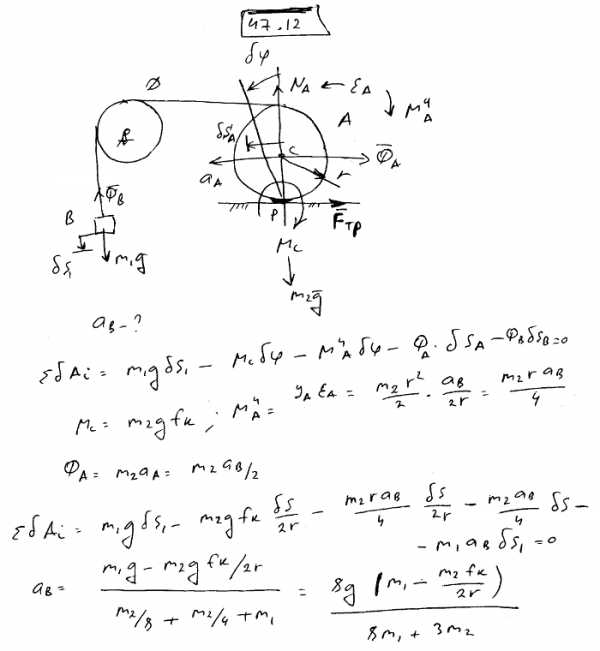 47.12
δφ
∅
N_A ← ε_A
M_A^и
A
δS_A
C
Φ̄_A
a_A
r
Φ̄_B
B
P
F̄_тр
δS_1
m_1g
M_c
m_2ḡ
a_B - ?
ΣδA_i = m_1gδS_1 - M_cδφ - M_A^иδφ - Φ_A · δS_A - Φ_BδS_B = 0
M_c = m_2gf_к ; M_A^и = J_Aε_A = m_2r²/2 · a_B/2r = m_2ra_B/4
Φ_A = m_2a_A = m_2a_B/2
ΣδA_i = m_1gδS_1 - m_2gf_к δS/2r - m_2ra_B/4 δS/2r - m_2a_B/4 δS -
- m_1a_BδS_1 = 0
a_B = (m_1g - m_2gf_к/2r)/(m_2/8 + m_2/4 + m_1) = 8g(m_1 - m_2f_к/2r)/(8m_1 + 3m_2)